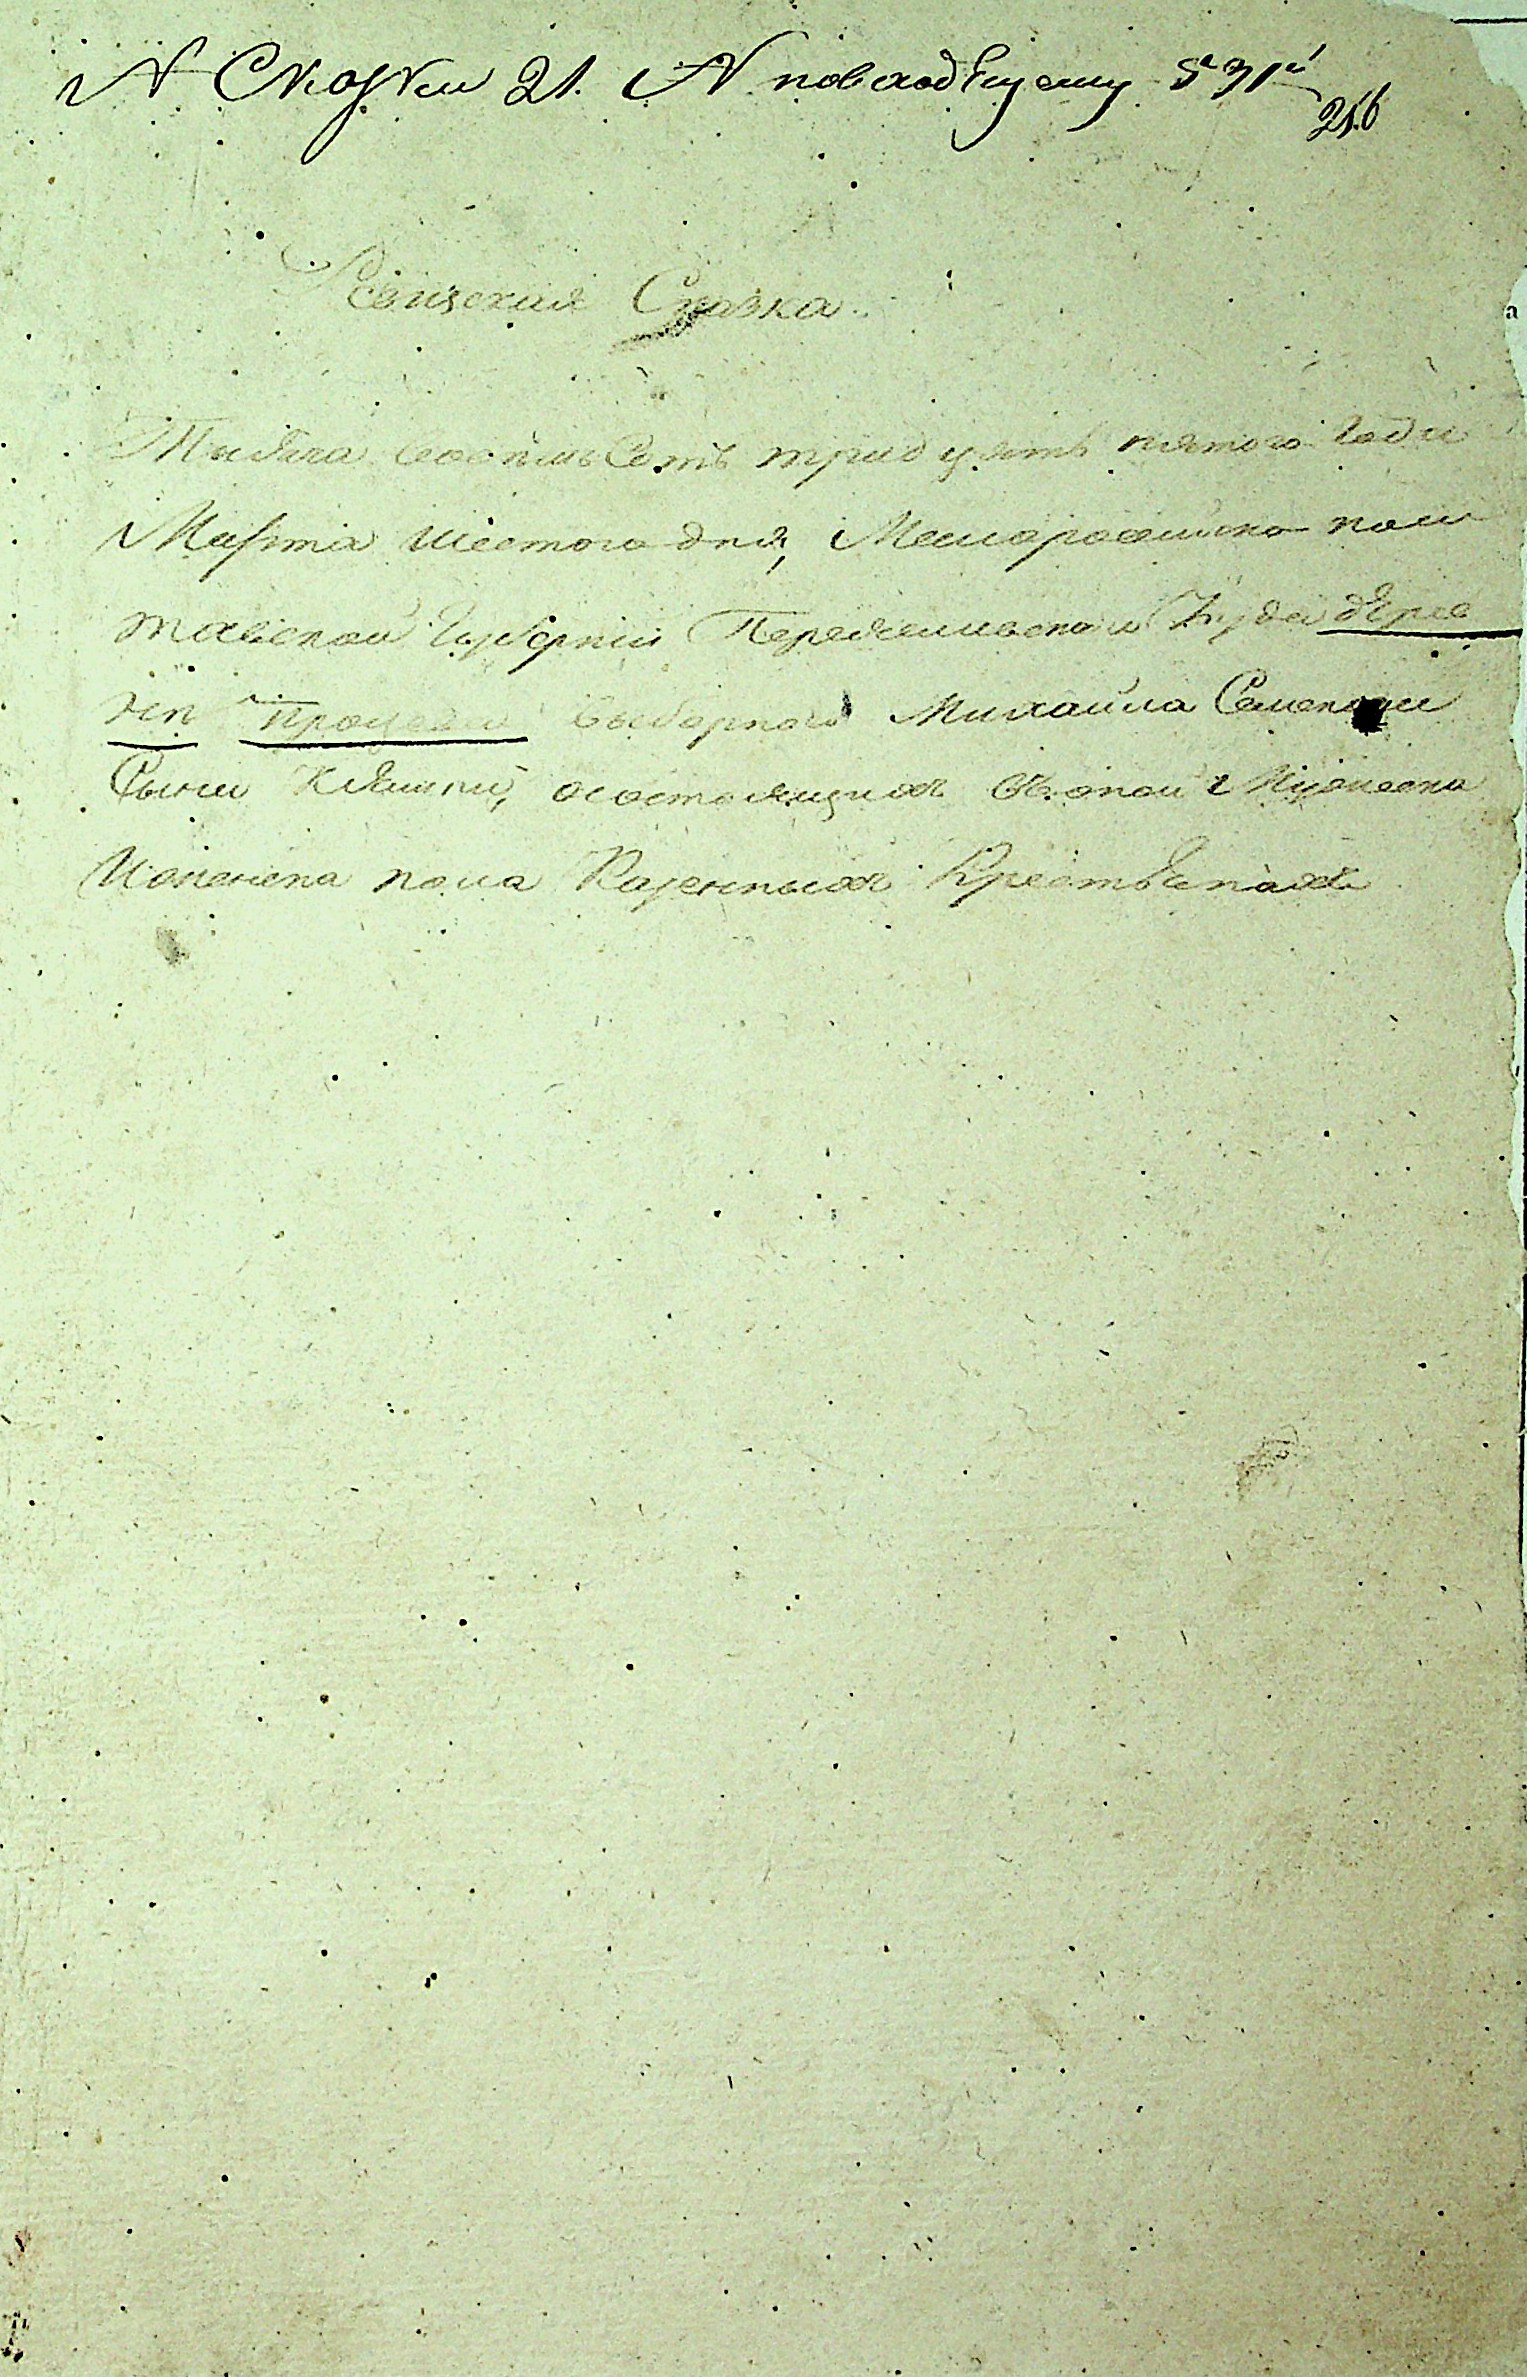 N Сказки 21. N повходящему 531й
216
Ревизская Сказка.
Тысяча восемь Сотъ тридцять пятого Года
Марта шестого дня, Малоросийско пол
тавской Губернии Переяславского уезда дерев
нѣ Процевки выборного Михайла Семенова
Сына осостоящихъ въ оной Мужеска
Иженска пола Казенныхъ Крестьянахъ